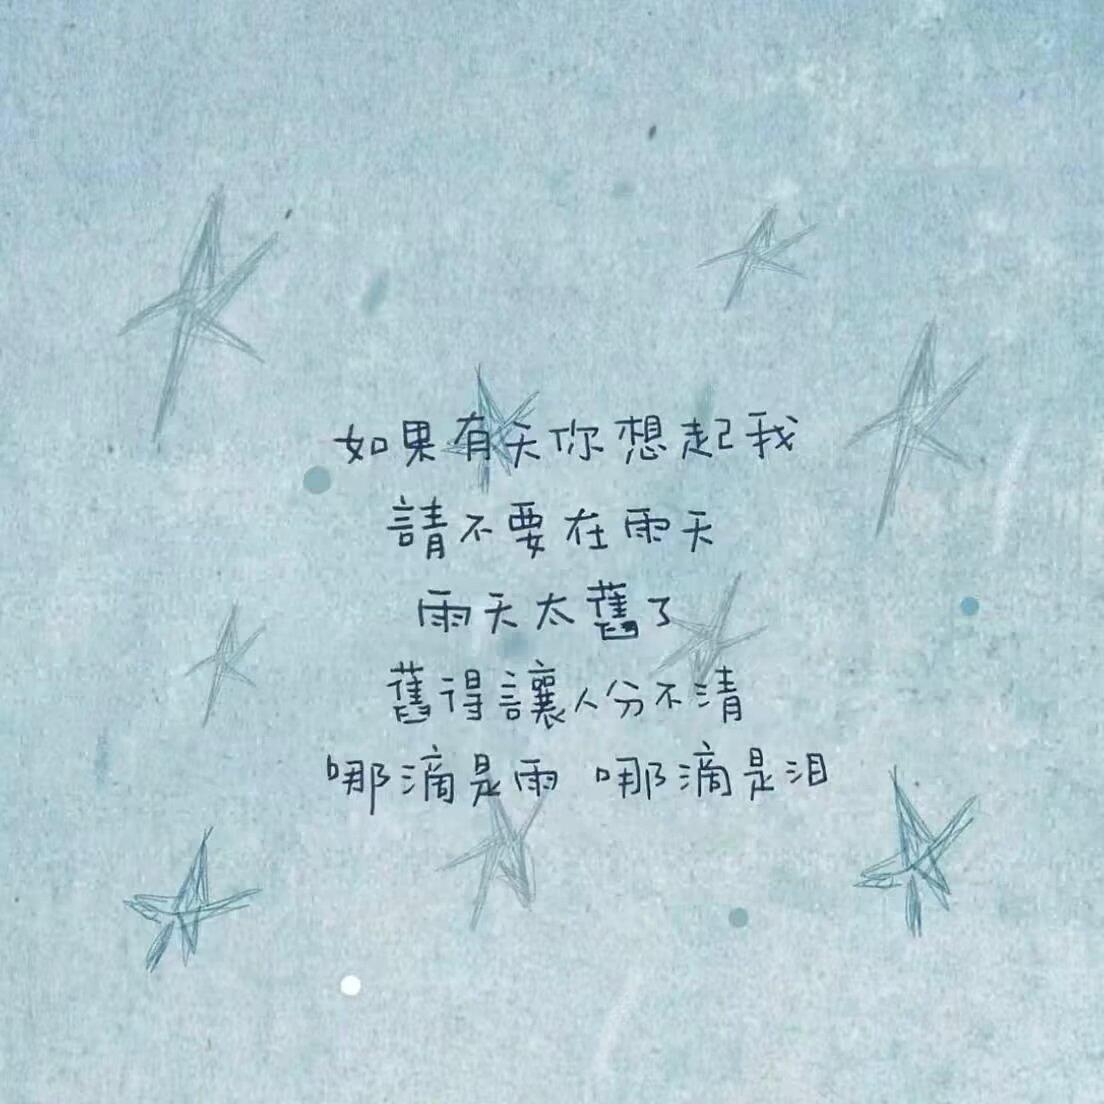 如果有天你想起我
請不要在雨天
雨天太舊了
舊得讓人分不清
哪滴是雨 哪滴是泪